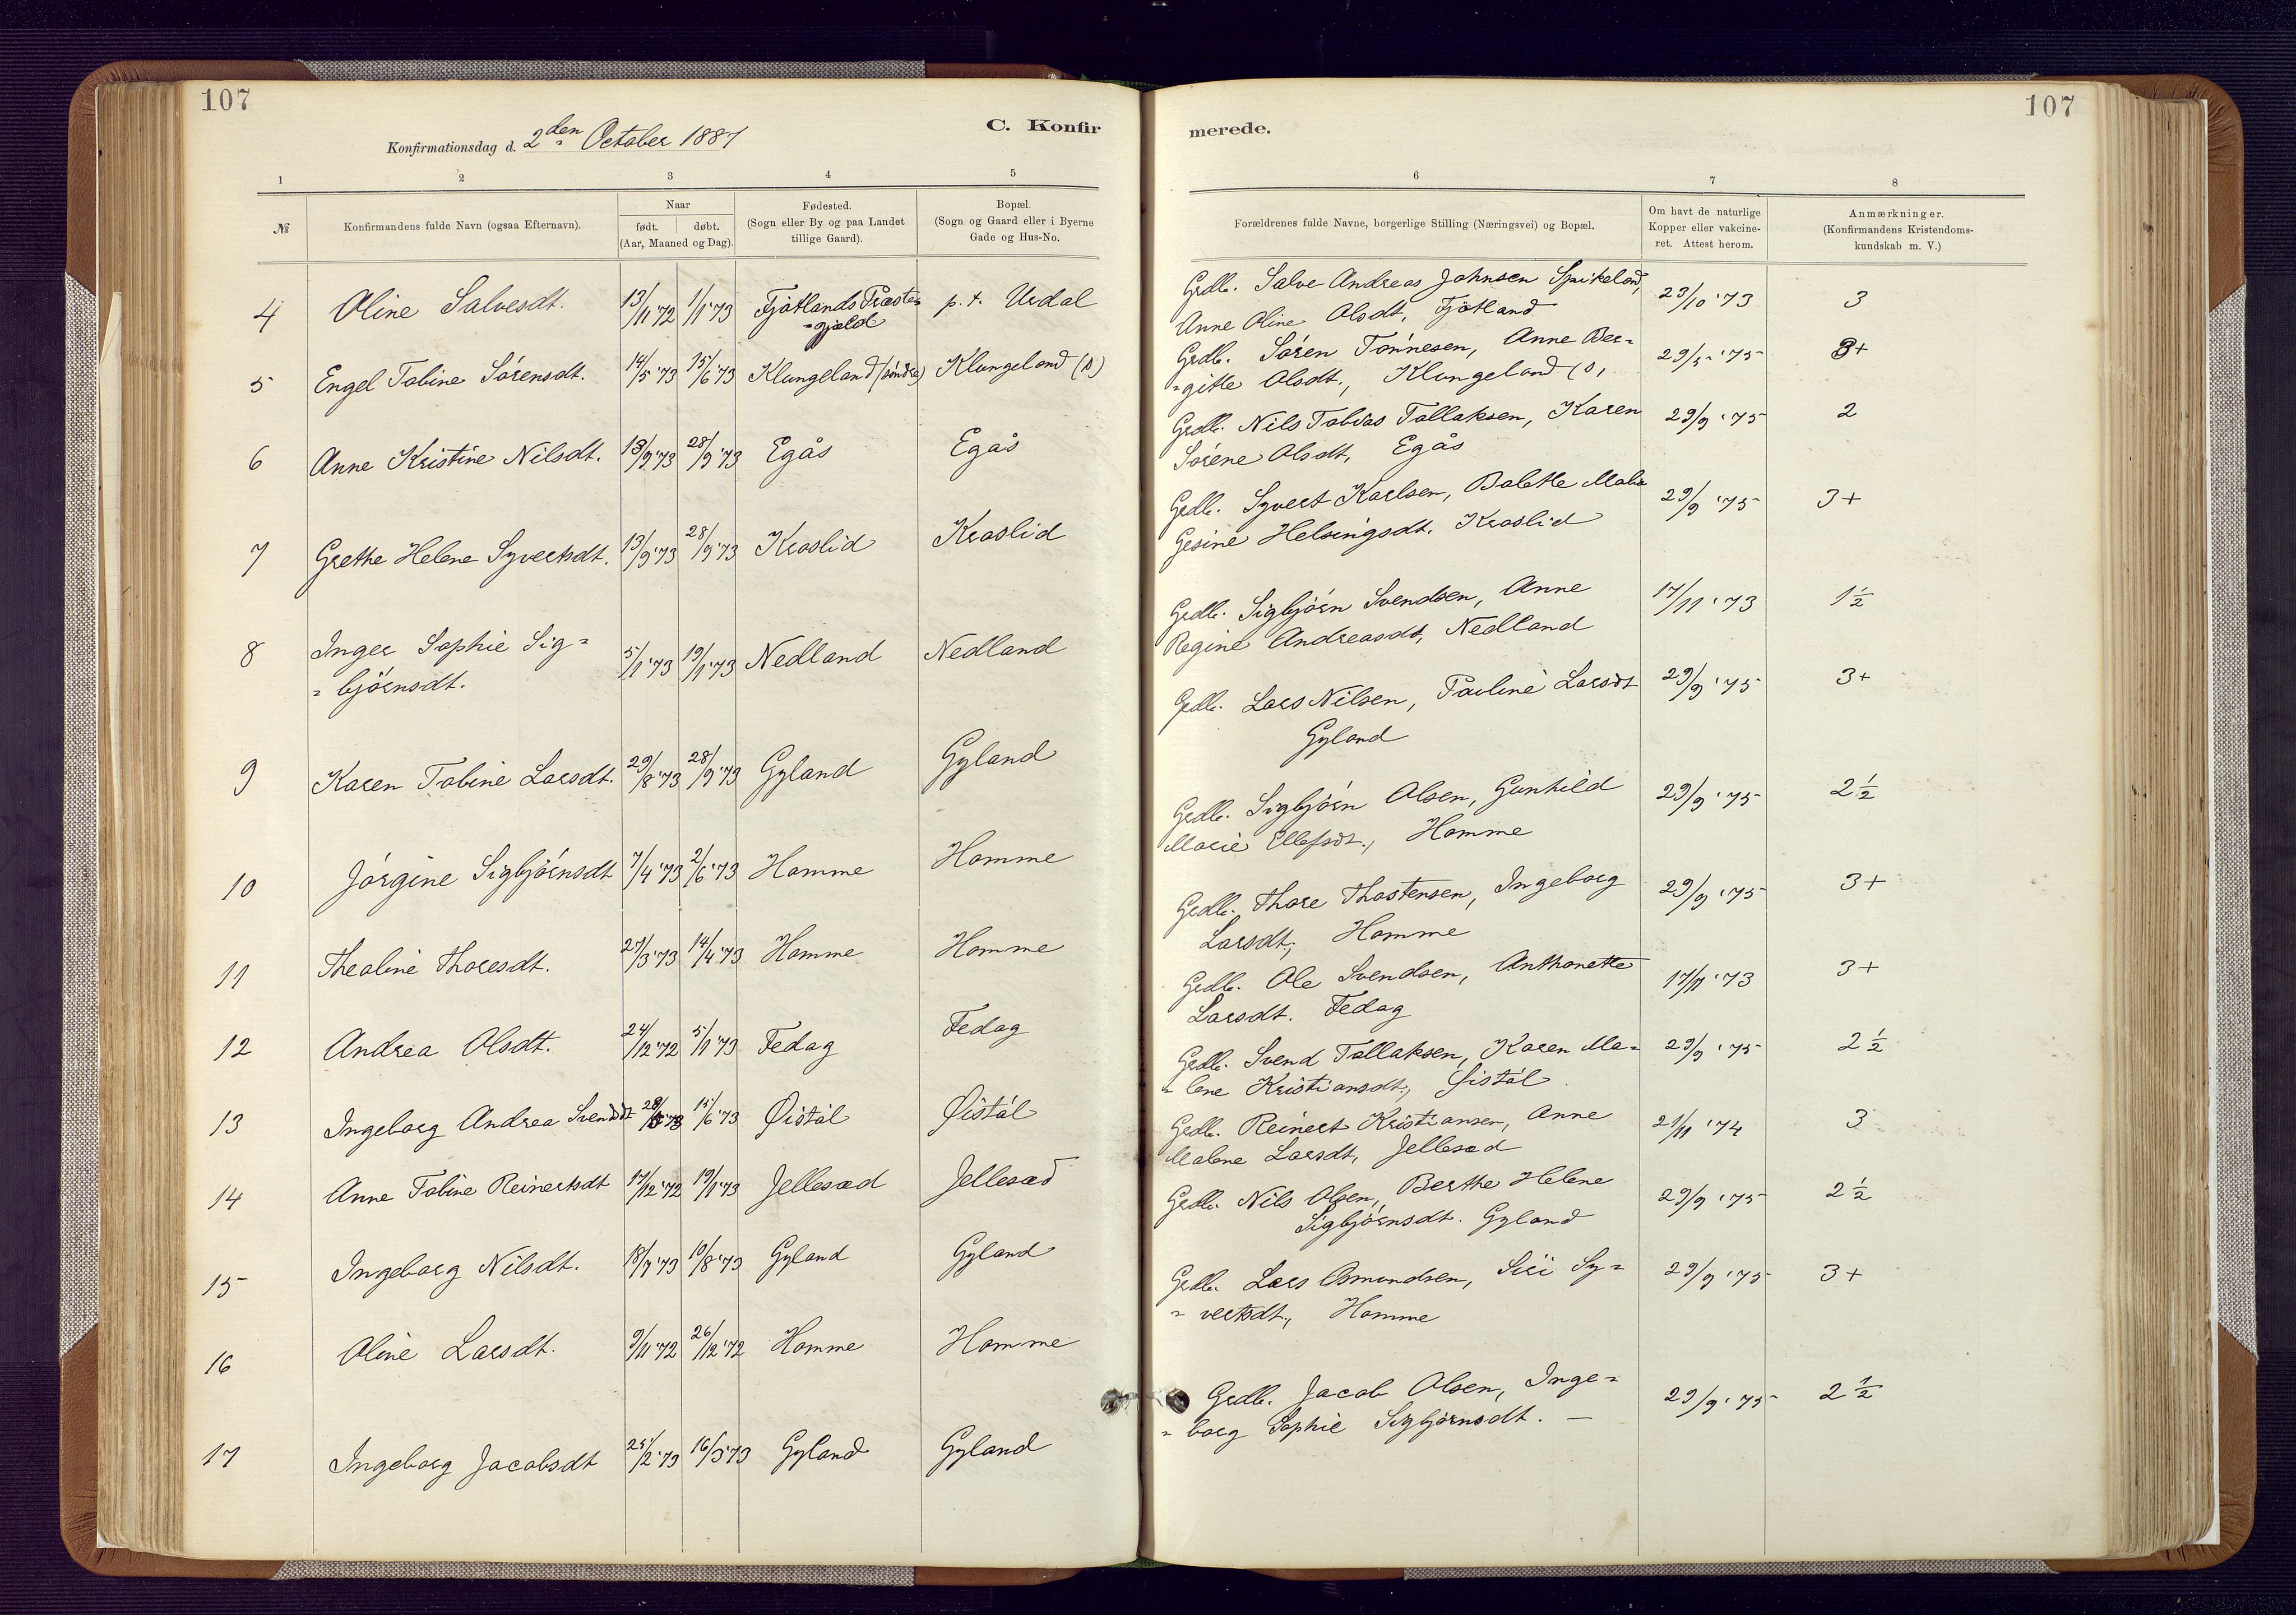 107
107
Konfirmationsdag d. 2den October 1887
C. Konfir
merede.
1 2 3 4 5 6 7 8
№
Konfirmandens fulde Navn (ogsaa Efternavn).
Naar
født. døbt.
(Aar, Maaned og Dag).
Fødested.
(Sogn eller By og paa Landet
tillige Gaard).
Bopæl.
(Sogn og Gaard eller i Byerne
Gade og Hus-No.
Forældrenes fulde Navne, borgerlige Stilling (Næringsvei) og Bopæl.
Om havt de naturlige
Kopper eller vakcine-
ret. Attest herom.
Anmærkninger.
(Konfirmandens Kristendoms-
kundskab m. V.)
4 Oline Salvesdt. 13/11 '72 1/1 '73 Fjotlands Præste-
-gjæld
p. t. Urdal
Grdb. Salve Andreas Johnsen Spikeland,
Anne Oline Olsdt, Fjotland
23/10 '73 3
5 Engel Tobine Sörensdt. 14/5 '73 15/6 '73 Klungeland (söndre) Klungeland (s)
Grdb. Sören Tönnesen, Anne Ber-
-gitte Olsdt., Klungeland (s,
29/5 '75 3+
6 Anne Kristine Nilsdt. 13/9 '73 28/9 '73 Egås Egås
Grdb. Nils Tobias Tallaksen, Karen
Sörene Olsdt, Egås
29/9 '75 2
7 Grethe Helene Syvertsdt. 13/9 '73 28/9 '73 Kraslid Kraslid
Grdb. Syvert Karlsen, Bolette Malie
Gesine Helsingsdt. Kraslid
29/9 '75 3+
8 Inger Sophie Sig=
= björnsdt.
5/1 '73 19/1 '73 Nedland Nedland
Grdb. Sigbjörn Svendsen, Anne
Regine Andreasdt, Nedland
17/11 '73 1 1/2
9 Karen Tobine Larsdt. 29/8 '73 28/9 '73 Gyland Gyland
Grdb. Lars Nilsen, Pauline Larsdt
Gyland
29/9 '75 3+
10 Jörgine Sigbjörnsdt 7/4 '73 2/6 '73 Homme Homme
Grdb. Sigbjörn Olsen, Gunhild
Marie Ellefsdt., Homme
29/9 '75 2 1/2
11 Thealine Thoresdt. 27/3 '73 14/4 '73 Homme Homme
Grdb. Thore Thostensen, Ingeborg
Larsdt., Homme
29/9 '75 3+
12 Andrea Olsdt. 24/12 '72 5/1 '73 Fedag Fedag
Grdb. Ole Svendsen, Anthonette
Larsdt. Fedag
17/11 '73 3+
13 Ingeborg Andrea Svendsdt 15/6 '73 Øistöl Øistöl
Grdb. Svend Tallaksen, Karen Ma=
= lene Kristiansdt., Øistöl
29/9 '75 2 1/2
14 Anne Tobine Reinertsdt 17/12 '72 19/1 '73 Jellesæd Jellesæd
Grdb. Reinert Kristiansen, Anne
Malene Larsdt, Jellesæd
21/11 '74 3
15 Ingeborg Nilsdt. 18/7 '73 10/8 '73 Gyland Gyland
Grdb. Nils Olsen, Berthe Helene
Sigbjörnsdt. Gyland
29/9 '75 2 1/2
16 Oline Larsdt. 9/11 '72 26/12 '72 Homme Homme
Grdb. Lars Osmundsen, Siri Sy=
= vertsdt., Homme
29/9 '75 3+
17 Ingeborg Jacobsdt 25/2 '73 16/3 '73 Gyland Gyland
Grdb. Jacob Olsen, Inge=
= borg Sophie Sigbjörnsdt. —
29/9 '75 2 1/2